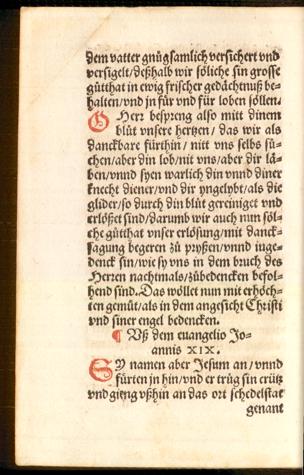 dem vatter gnůgsamlich versichert vnd
versigelt/deßhalb wir söliche sin grosse
gůtthat in ewig frischer gedächtnuß be-
halten/vnd jn für vnd für loben söllen.
O Herr bespreng also mit dinem
blůt vnsere hertzen/das wir als
danckbare fürthin/nitt vns selbs sů-
chen/aber din lob/nit vns/aber dir lä-
ben/vnnd syen warlich din vnnd diner
knecht diener/vnd dir yngelybt/als die
glider/so durch din blůt gereiniget vnd
erlößet sind/darumb wir auch nun söl-
che gůtthat vnser erlösung/mit danck-
sagung begeren zů pryßen/vnnd inge-
denck sin/wie sy vns in dem bruch des
Herren nachtmals/zůbedencken befol-
hend sind. Das wöllet nun mit erhöch-
ten gemůt/als in dem angesicht Christi
vnd siner engel bedencken.
¶ Vß dem euangelio Jo-
annis XIX.
SY namen aber Jesum an/vnnd
fůrten jn hin/vnd er trůg sin crütz
vnd gieng vßhin an das ort schedelstat
genant